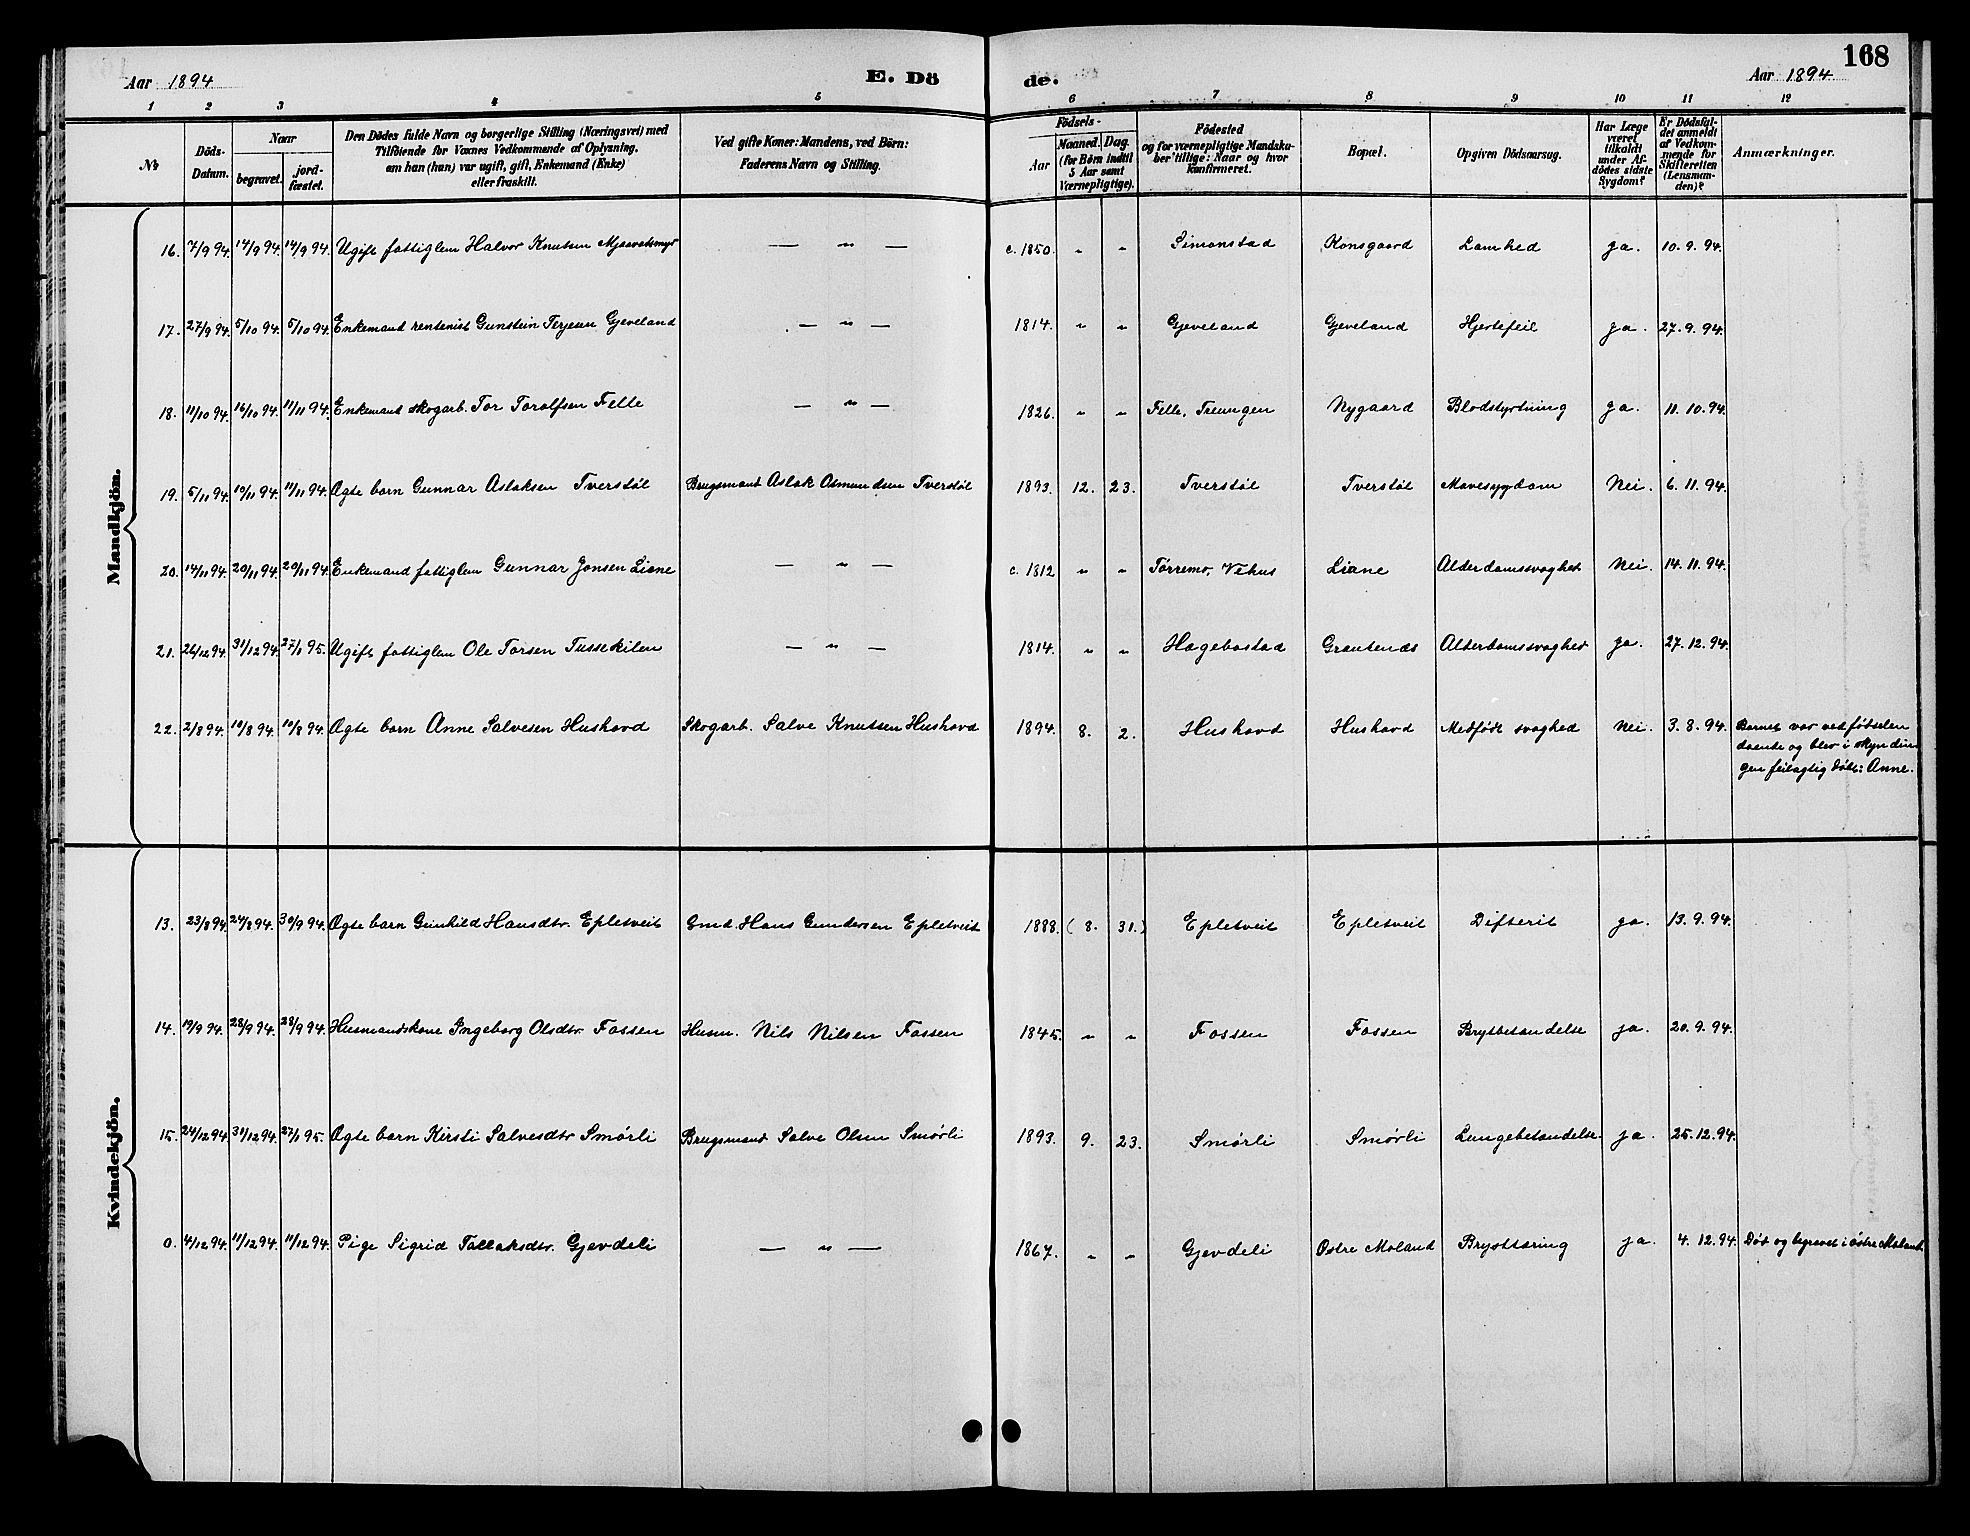 168
Aar 1894 E. Dö de. Aar 1894
1 2 3 4 5 6 7 8 9 10 11 12
№ Döds-Datum. Naar begravet. jord-fæstet. Den Dödes fulde Navn og borgerlige Stilling (Næringsvei) med Tilföiende for Voxnes Vedkommende af Oplysning, om han (hun) var ugift, gift, Enkemand (Enke) eller fraskilt. Ved gifte Koner: Mandens, ved Börn: Faderens Navn og Stilling. Födsels- Aar Maaned. Dag. (for Börn indtil 5 Aar samt Værnepligtige). Födested og for værnepligtige Mandskaber tillige: Naar og hvor konfirmeret. Bopæl. Opgiven Dödsaarsag. Har Læge været tilkaldt under Afdödes sidste Sygdom? Er Dödsfaldet anmeldt af Vedkommende for Skifteretten (Lensmanden)? Anmærkninger.
Mandkjön.
16. 7/9 94. 14/9 94. 14/9 94. Ugift fattiglem Halvor Knutsen Mjaavatsmyr — " — c. 1850. " " Simonstad Konsgaard Lamhed ja. 10. 9. 94.
17. 27/9 94. 5/10 94. 5/10 94. Enkemand rentenist Gunstein Terjesen Gjeveland — " — 1814. " " Gjeveland Gjeveland Hjertefeil ja. 27. 9. 94.
18. 11/10 94. 16/10 94. 11/11 94. Enkemand skogarb. Tor Torolfsen Felle — " — 1826. " " Felle, Treungen Nygaard Blodstyrtning ja. 11. 10. 94.
19. 5/11 94. 10/11 94. 11/11 94. Ægte barn Gunnar Aslaksen Tverstøl Brugsmand Aslak Osmundsen Tverstøl 1893. 12. 23. Tverstøl Tverstøl Mavesygdom Nei. 6. 11. 94.
20. 14/11 94. 20/11 94. 20/11 94. Enkemand fattiglem Gunnar Jonsen Liane — " — c. 1812 " " Tørremo, Vehus Liane Alderdomssvaghed Nei. 14. 11. 94.
21. 26/12 94. 31/12 94. 27/1 95. Ugift fattiglem Ole Torsen Tussekilen — " — 1814. " " Hægebostad Grautenæs Alderdomssvaghed ja. 27. 12. 94.
22. 2/8 94. 10/8 94. 10/8 94. Ægte barn Anne Salvesen Hushovd Skogarb. Salve Knutsen Hushovd 1894. 8. 2. Hushovd Hushovd Medfødt svaghed Nei. 3. 8. 94. Barnet var ved fødselen
døende og blev i skyndin
gen feilagtig døbt: Anne.
Kvindekjön.
13. 23/8 94. 24/8 94. 30/9 94. Ægte barn Gunhild Hansdtr. Epletveit Gmd. Hans Gundersen Epletveit 1888. (8. 31.) Epletveit Epletveit Difterit ja. 13. 9. 94.
14. 19/9 94. 28/9 94. 28/9 94. Husmandskone Ingeborg Olsdtr. Fossen Husm. Nils Nilsen Fossen 1845. " " Fossen Fossen Brystbetændelse ja. 20. 9. 94.
15. 24/12 94. 31/12 94. 27/1 95. Ægte barn Kirsti Salvesdtr Smørli Brugsmand Salve Olsen Smørli 1893. 9. 23. Smørli Smørli Lungebetændelse. ja. 25. 12. 94.
0. 4/12 94. 11/12 94. 11/12 94. Pige Sigrid Tallaksdtr. Gjevdeli — " — 1867. " " Gjevdeli Østre Moland Brysttæring ja. 4. 12. 94. Død og begravet i østre Moland.